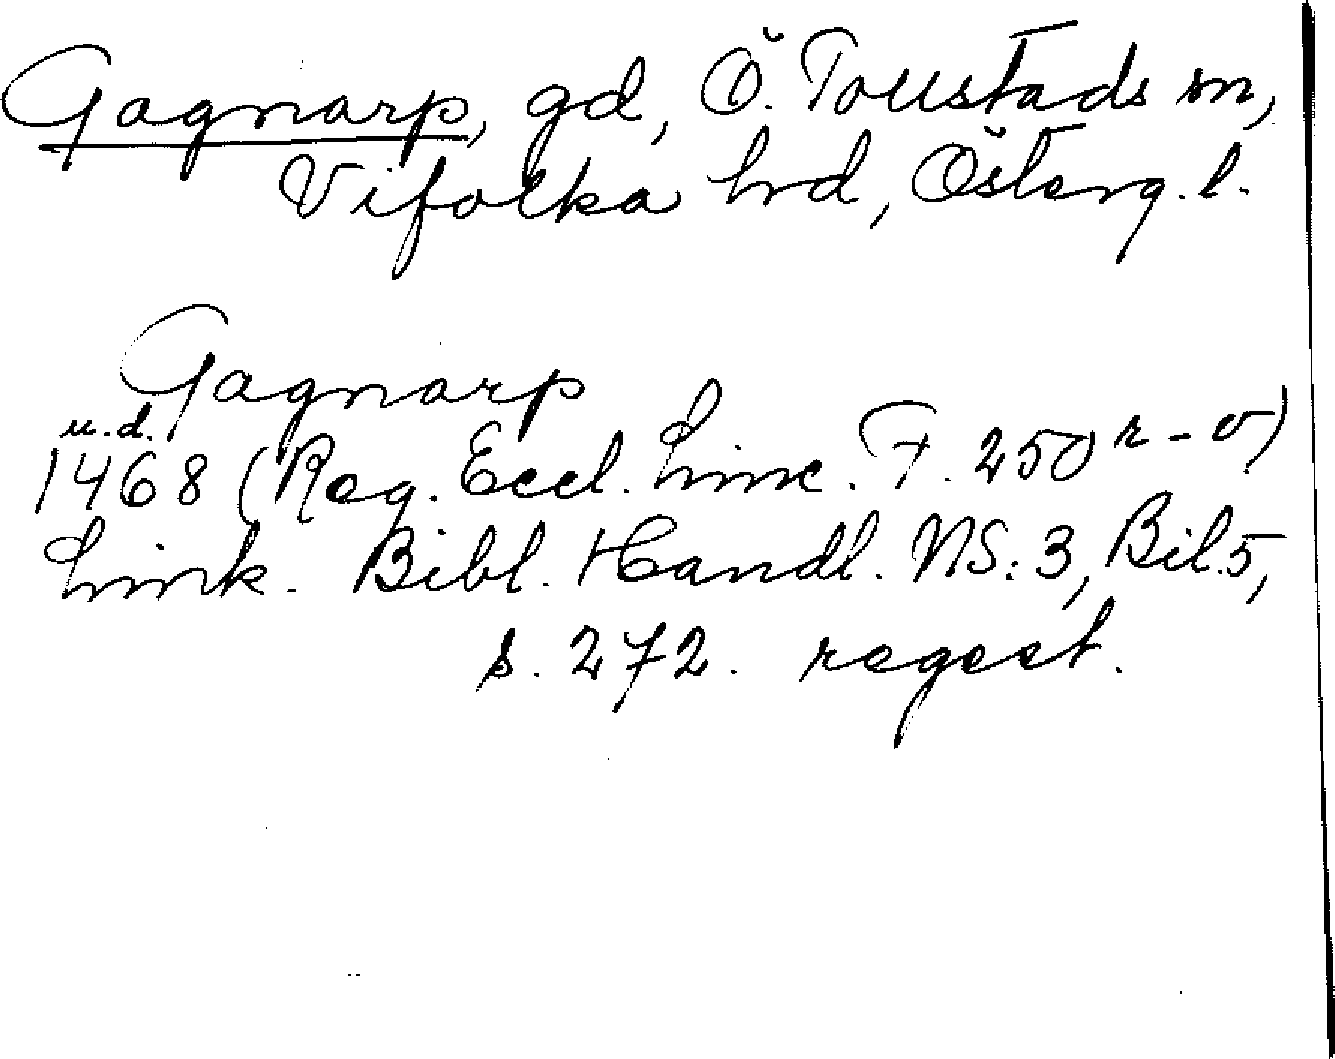 Gagnarp, gd, Ö. Tollstads sn,
Vifolka hrd, Österg. l.
Gagnarp
u.d.
1468 (Reg. Eccl. Linc. F. 250 r-v)
Link. Bibl. Handl. NS: 3, Bil. 5,
s. 272. regest.